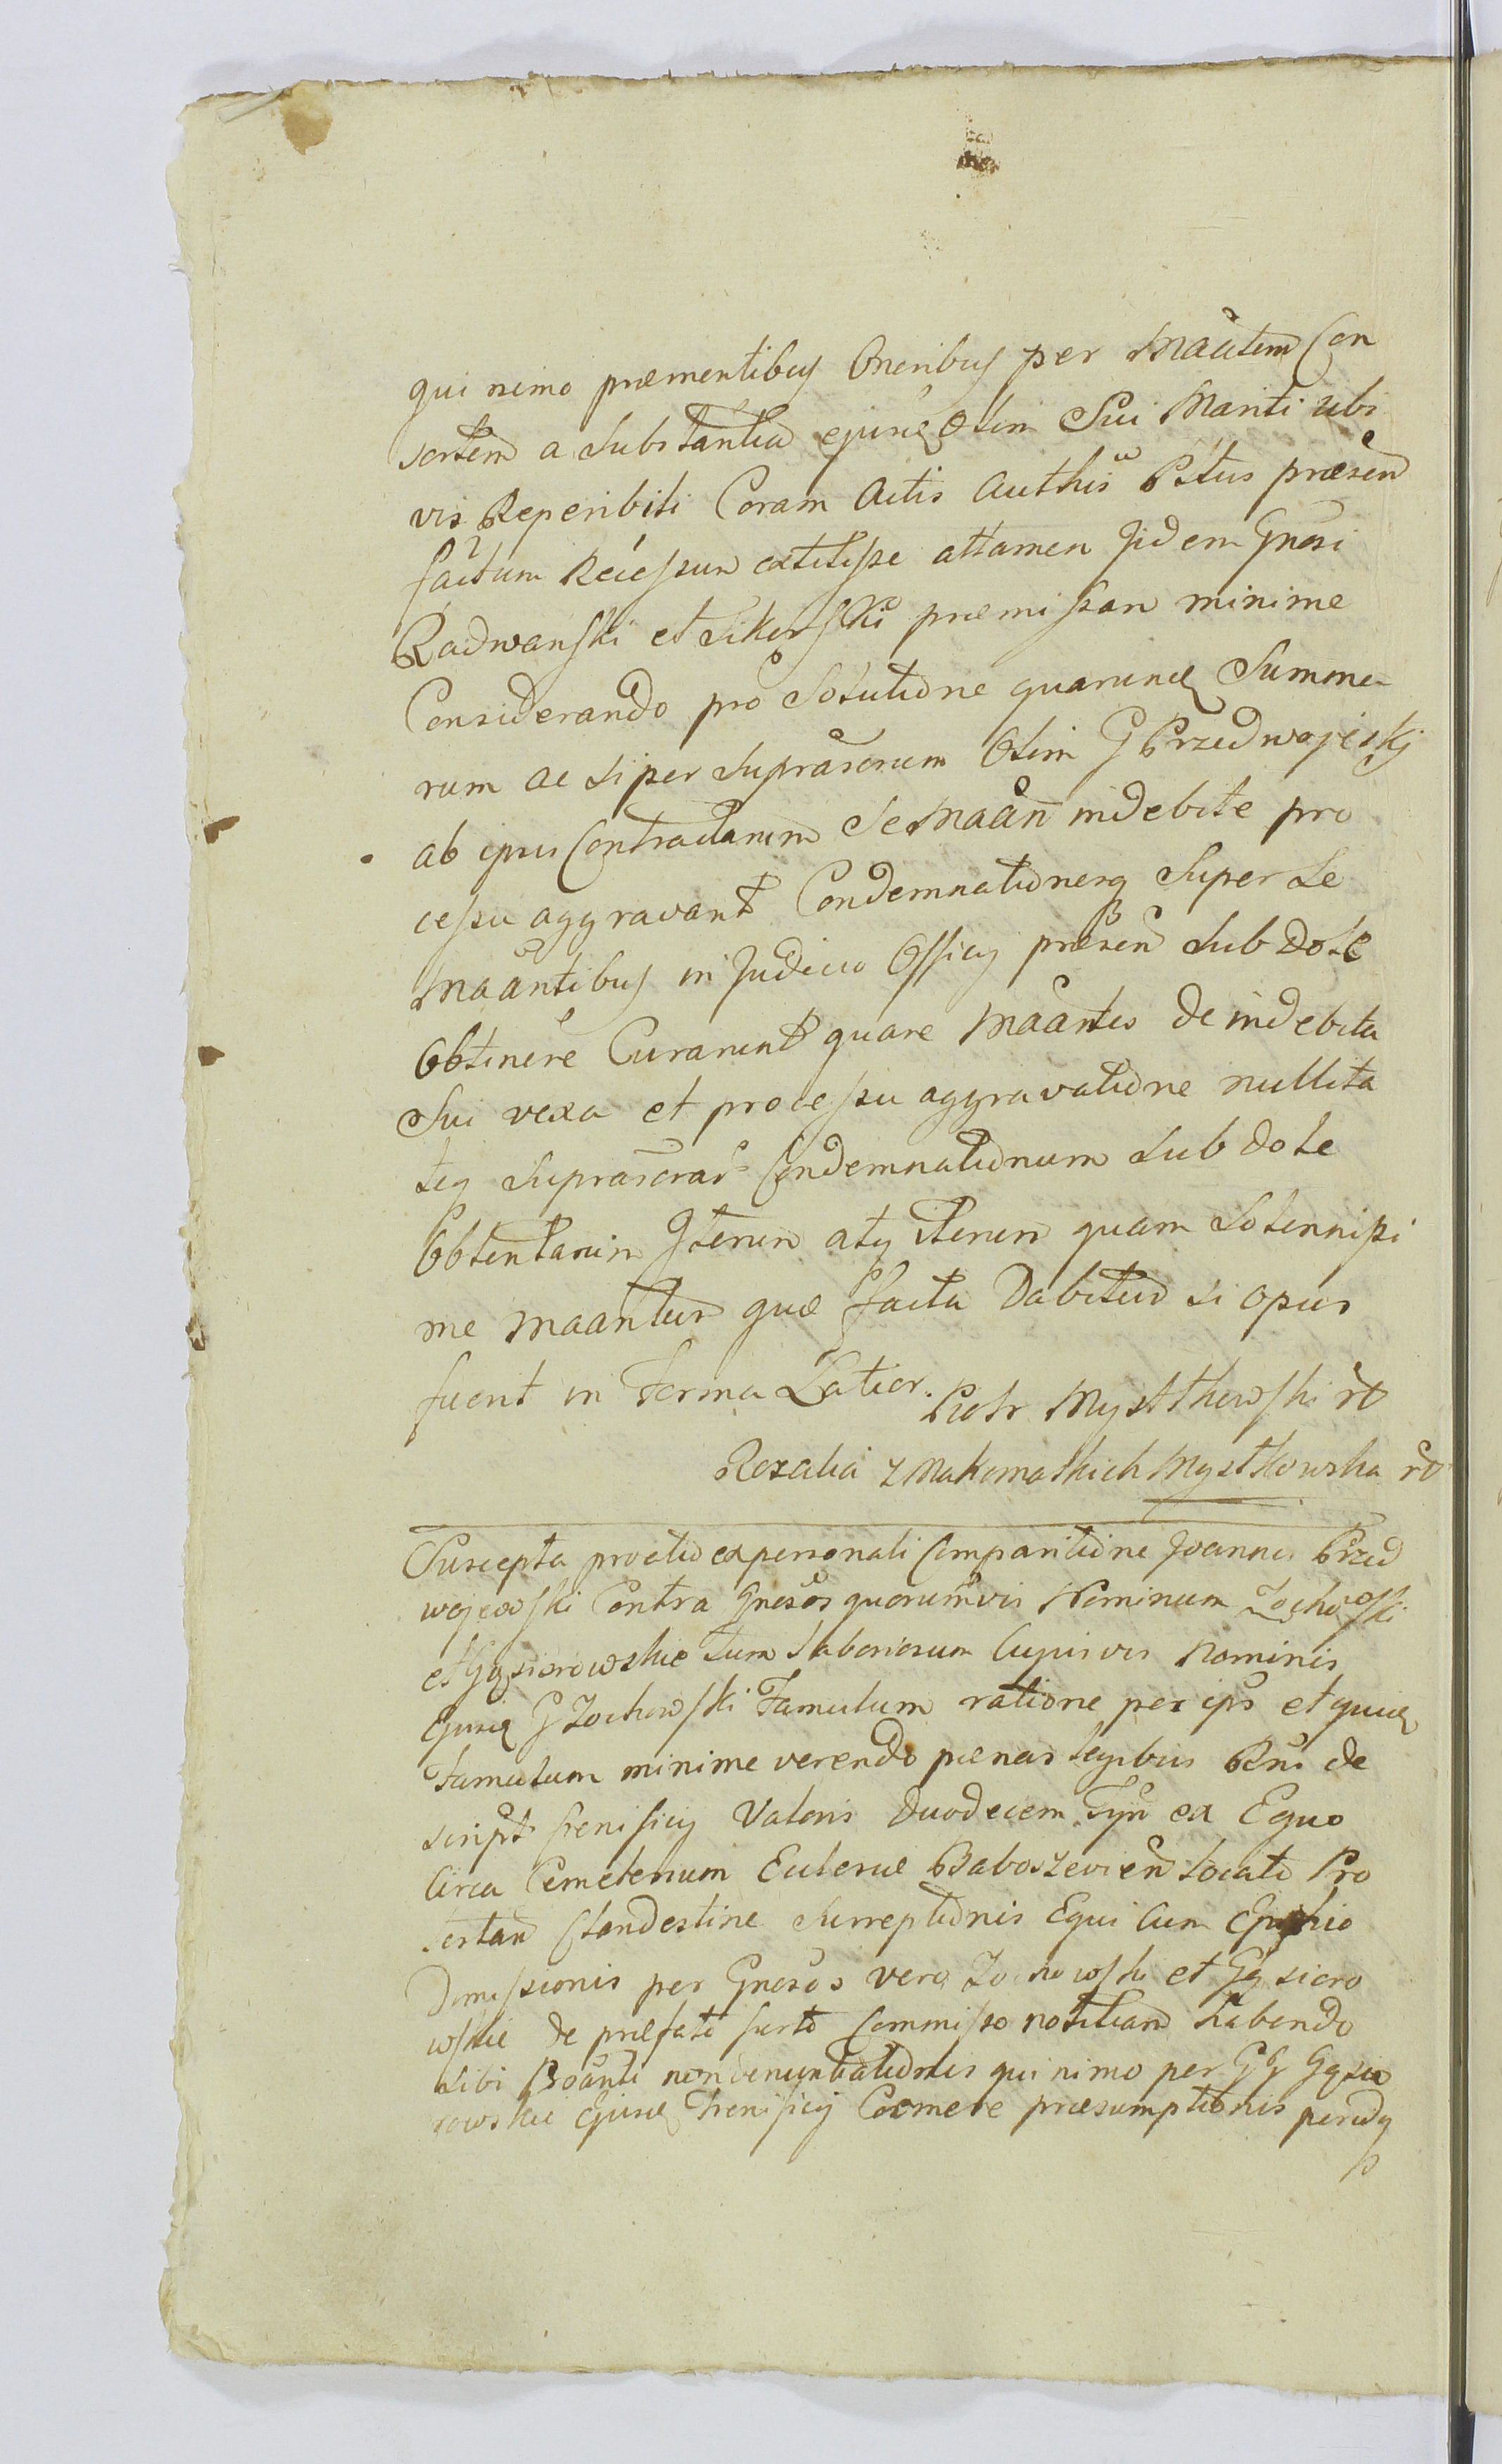 qui nimo præmentibus Oneribus per Maãtem Con
sortem a Substantia ejusdq Olim Sui Mariti ubi
vis Reperibili Coram Actis Authēn Pltus præsen
factum Recessum extitisse attamen Jidem Gnosi
Radwanski et Sikorski præmissan minime
Considerando pro Solutione quarundq Summa-
rum ac si per Suprascrum Olim G Przedwojewskj
ab ipsis Contractarum Se Maan indebite pro
cessu aggravant Condemnationesq Super Se
Maantibus in Judicio Officij præsen Sub dole
Obtinere Curarunt quare Maantes de indebita
Sui vexa et processu aggravatione nullita
teq Suprascrar Condemnationum Sub dole
Obtentarum Iterum atq iterum quam Solennissi
me Maantur quæ facta Dabitur si opus
fuerit in Forma Latior.
Piotr Mysthowski
Rozalia z Makomaskich Mystkowska
Suscepta protio ex personali Comparitione Joannis Przed
wojewski Contra Gnosos quorumvis Nominum Zochowski
et Gąsiorowskie tum Laboriosum Cujusvis Nominis
Ejusdq G Zochowski Famulum ratione per ips et
Famulum minime verendo pænas legibus Rni de
script frenisicij Valoris Duodecem Tyn ex Equo
Circa Cemeterium Eclesiæ Baboszevien locato Pro
testan Clandestine Surreptionis Equi Cum Ephipio
Dimissionis per Gnosos vero Zochowski et Gąsioro
wskie de præfato furto Commisso notitiam habendo
Sibi Ptoanti non denuntiationis qui nimo per GG Gąsio
rowskie Ejusdq frenisicij Coemere præsumptionis